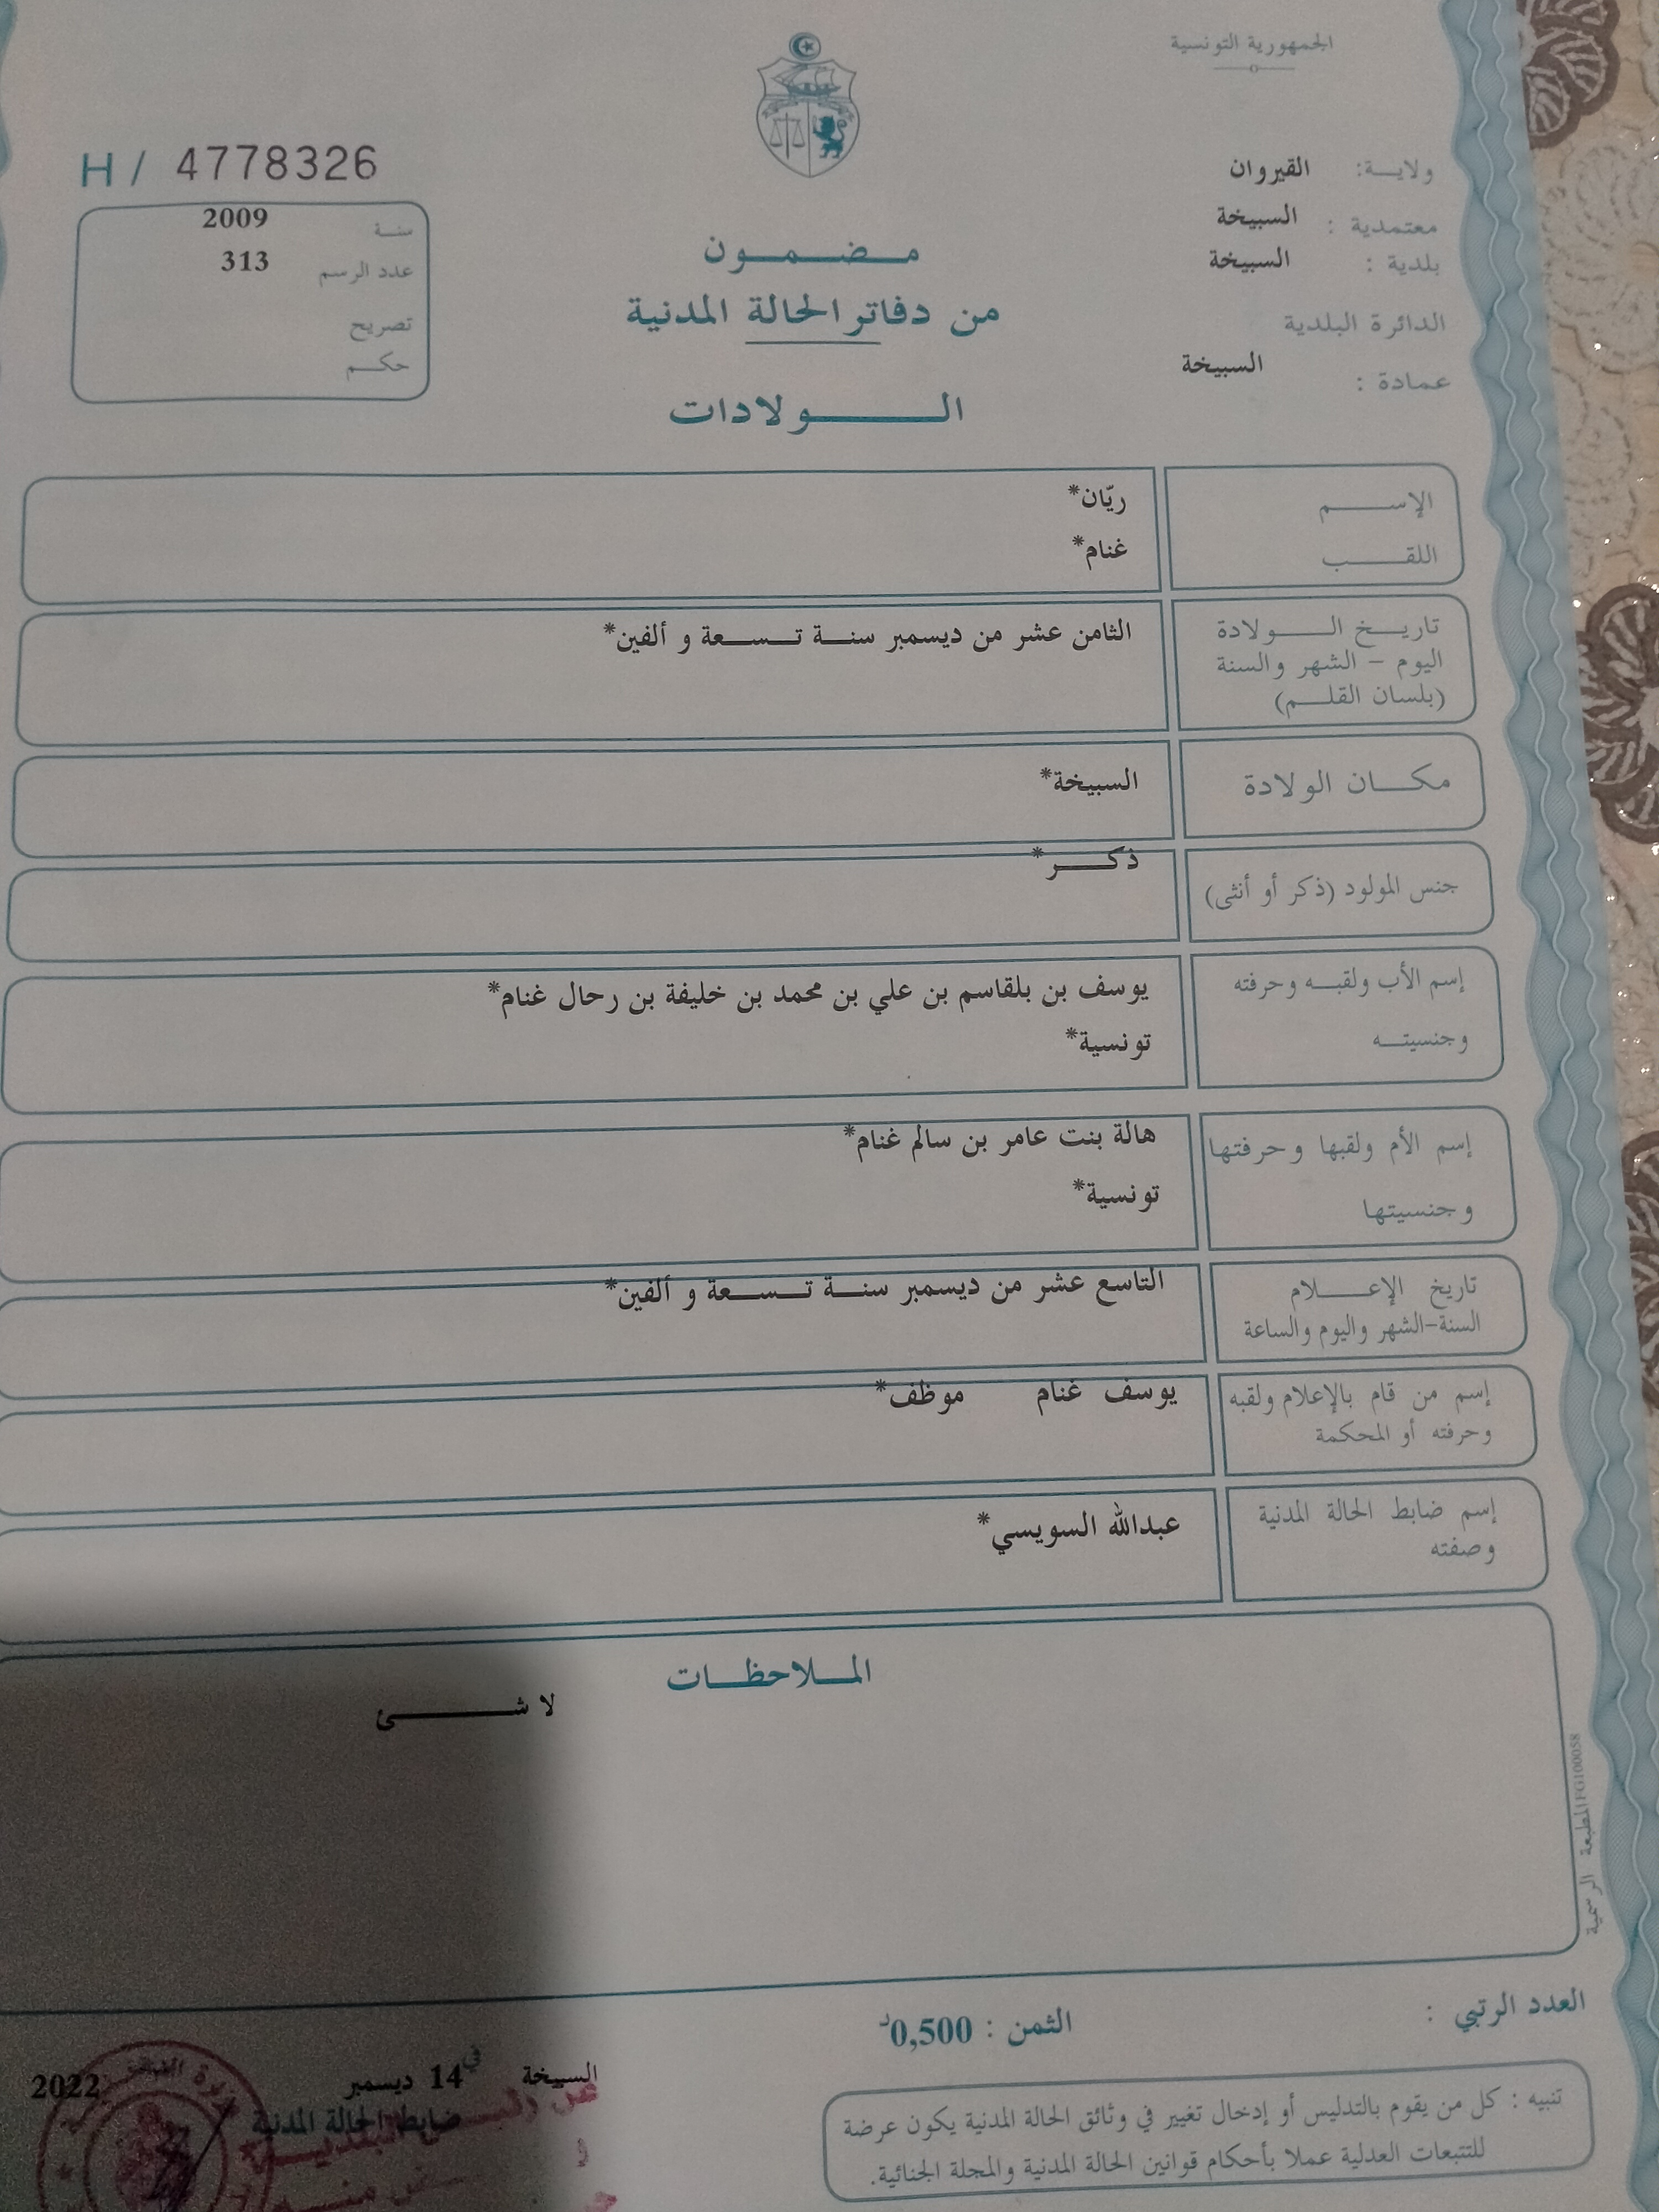 الجمهورية التونسية
ولايـــة: القيروان
معتمدية : السبيخة
بلدية : السبيخة
الدائرة البلدية
عمادة : السبيخة
H / 4778326
سنـة 2009
عدد الرسم 313
تصريح
حكـــم
مـــضـــمـــون
من دفاتر الحالة المدنية
الـــــــولادات
الإســـــــم ريّان*
اللقـــــــب غنام*
تاريـــخ الـــــولادة
اليوم - الشهر والسنة
(بلسان القلـــم)
الثامن عشر من ديسمبر سنـــة تـــســـعة و ألفين*
مكـــان الولادة السبيخة*
جنس المولود (ذكر أو أنثى) ذكـــــر*
إسم الأب ولقبـــه وحرفته يوسف بن بلقاسم بن علي بن محمد بن خليفة بن رحال غنام*
وجنسيتـــه تونسية*
إسم الأم ولقبها وحرفتها هالة بنت عامر بن سالم غنام*
وجنسيتها تونسية*
تاريخ الإعـــــلام التاسع عشر من ديسمبر سنـــة تـــســـعة و ألفين*
السنة-الشهر واليوم والساعة
إسم من قام بالإعلام ولقبه يوسف غنام موظف*
وحرفته أو المحكمة
إسم ضابط الحالة المدنية عبدالله السويسي*
وصفته
المـــلاحظـــات
لا شـــــــــئ
المطبعة الرسمية FG100058
العدد الرتبي :
الثمن : 0,500د
السبيخة في 14 ديسمبر 2022
ضابط الحالة المدنية
تنبيه : كل من يقوم بالتدليس أو إدخال تغيير في وثائق الحالة المدنية يكون عرضة
للتتبعات العدلية عملا بأحكام قوانين الحالة المدنية والمجلة الجنائية.